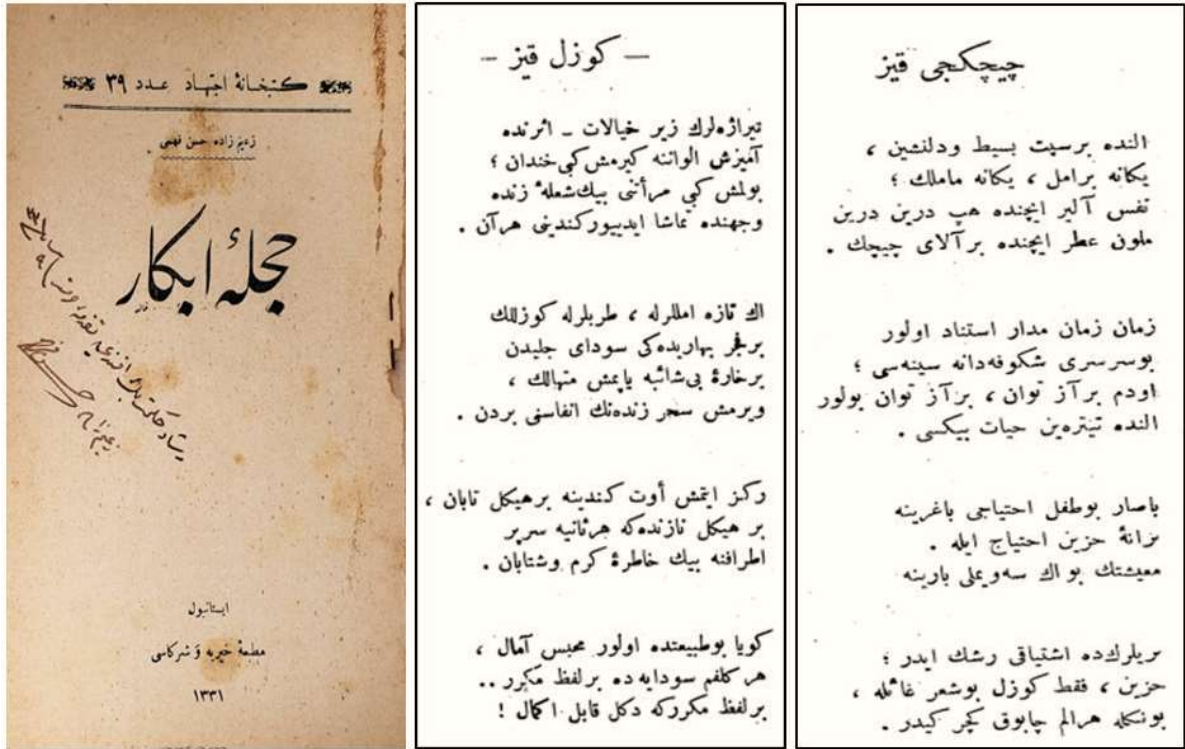 كتبخانهٔ اجتهاد عدد ٣٩
زعيم زاده حسن فهمی
حجلهٔ ابكار
استانبول
مطبعهٔ خيريه و شركاسی
١٣٣١
— كوزل قيز —
تيراژه‌لرك زير خيالات ـ اثرنده
آميزش الواننه كيرمش كبی خندان ؛
بولمش كبی مرأتنی بيك شعلهٔ زنده
وجهنده تماشا ايدييور كندينی هرآن .
اك تازه امللرله ، طربلرله كوزللك
برفجر بهاريده‌كی سودای جليدن
برخارهٔ بی‌شائبه ياپمش متهالك ،
ويرمش سحر زنده‌نك انفاسنی بردن .
ركز ايتمش أوت كندينه برهيكل تابان ،
بر هيكل نازنده‌كه هرثانيه سرپر
اطرافنه بيك خاطرهٔ كرم وشتابان .
كويا بوطبيعتده اولور محبس آمال ،
هر كلفم سودايه ده برلفظ مكرر ..
برلفظ مكرركه دكل قابل اكمال !
چيچكجی قيز
النده برسپت بسيط ودلنشين ،
يكانه برامل ، يكانه ماملك ؛
نفس آلير ايچنده هپ درين درين
ملون عطر ايچنده برآلای چيچك .
زمان زمان مدار استناد اولور
بوسرسری شكوفه‌دانه سينه‌سی ؛
اودم برآز توان ، برآز توان بولور
النده تيتره‌ين حيات بيكسی .
باصار بوطفل احتياجی باغرينه
ترانهٔ حزين احتياج ايله .
معيشتك بو اك سه‌ويملی بارينه
پريلرك‌ده اشتياقی رشك ايدر ؛
حزين ، فقط كوزل بوشعر غائله ،
بونكله هرالم چابوق كچر كيدر .